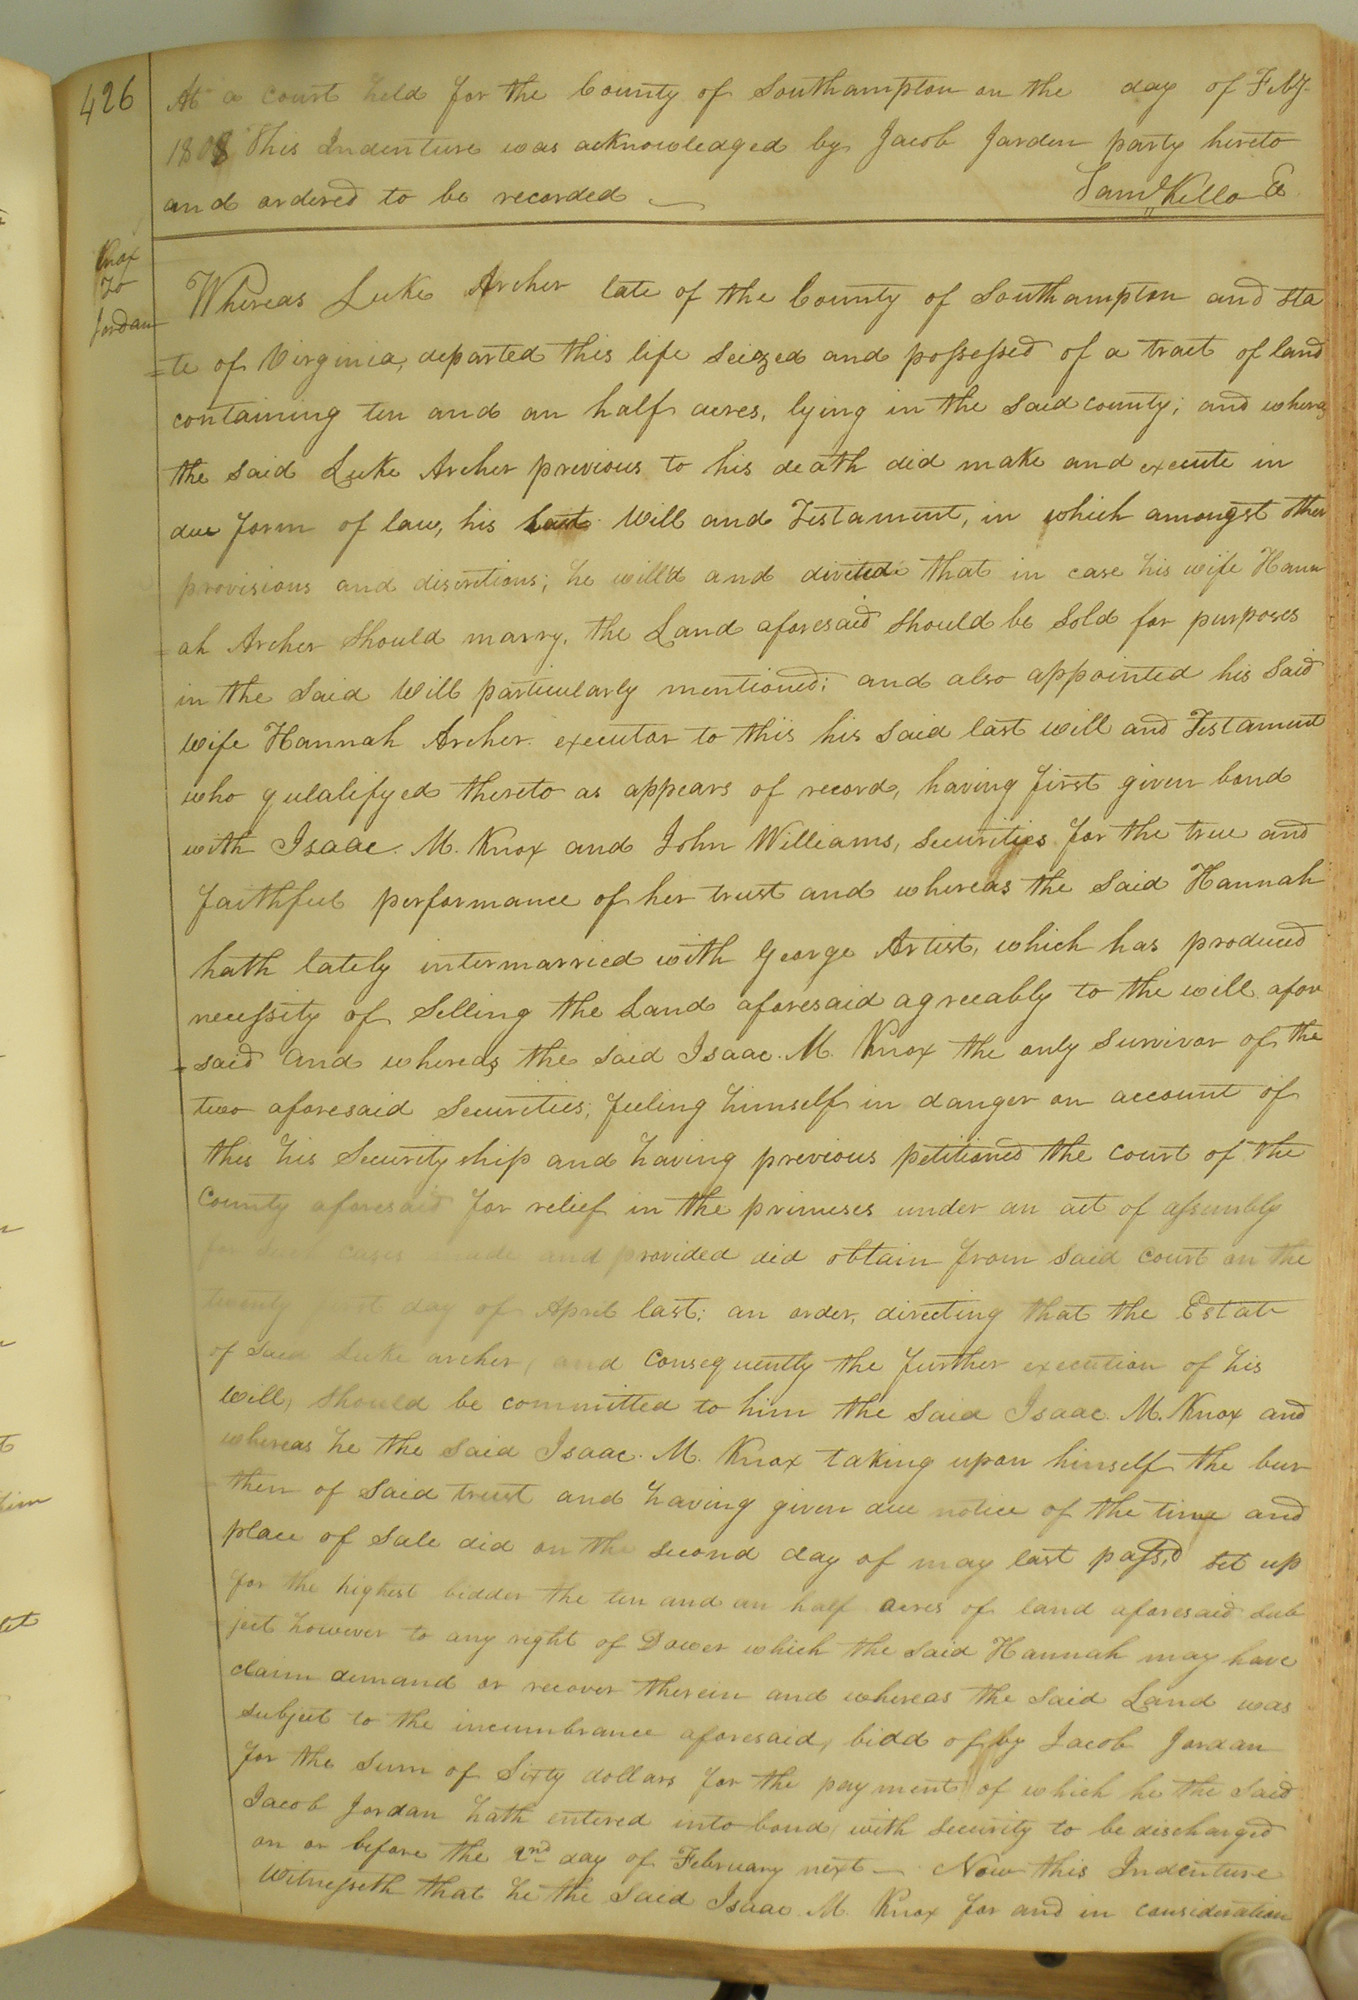 426
At a court held for the County of Southampton on the day of Feby
1808 This Indenture was acknowledged by Jacob Jarden party hereto
and ordered to be recorded
Saml Kello Cl
Knox
To
Jordan
Whereas Luke Archer late of the County of Southampton and Sta
=te of Virginia, departed this life Seized and possessed of a tract of land
containing ten and an half acres, lying in the said county; and whereas
the said Luke Archer previous to his death did make and execute in
due form of law, his last Will and Testament, in which amongst other
provisions and discretions; he will'd and directed that in case his wife Hann
=ah Archer should marry, the Land aforesaid should be sold for purposes
in the said Will particularly mentioned; and also appointed his said
wife Hannah Archer executor to this his said last will and Testament
who qulalifyed thereto as appears of record, having first given bond
with Isaac. M. Knox and John Williams, securities for the true and
faithful performance of her trust and whereas the said Hannah
hath lately intermarried with George Artist, which has produced
necessity of selling the Land aforesaid agreeably to the will afore
=said and whereas the said Isaac. M. Knox the only survivor of the
two aforesaid securities, feeling himself in danger on account of
this his security ship and having previous petitioned the court of the
County aforesaid for relief in the primeses under an act of assembly
for such cases made and provided did obtain from said court on the
twenty first day of April last; an order, directing that the Estate
of said Luke archer, and consequently the further execution of his
will, should be committed to him the said Isaac. M. Knox and
whereas he the said Isaac. M. Knox taking upon himself the bur
then of said trust and having given due notice of the time and
place of sale did on the second day of may last pass'd set up
for the highest bidder the ten and an half acres of land aforesaid sub
ject however to any right of Dower which the said Hannah may have
claim demand or recover therein and whereas the said Land was
subject to the incumbrance aforesaid, bidd of by Jacob Jordan
for the sum of Sixty dollars for the payment of which he the said
Jacob Jordan hath entered into bond with security to be discharged
on or before the 2nd day of February next — Now this Indenture
Witnesseth that he the said Isaac M. Knox for and in consideration